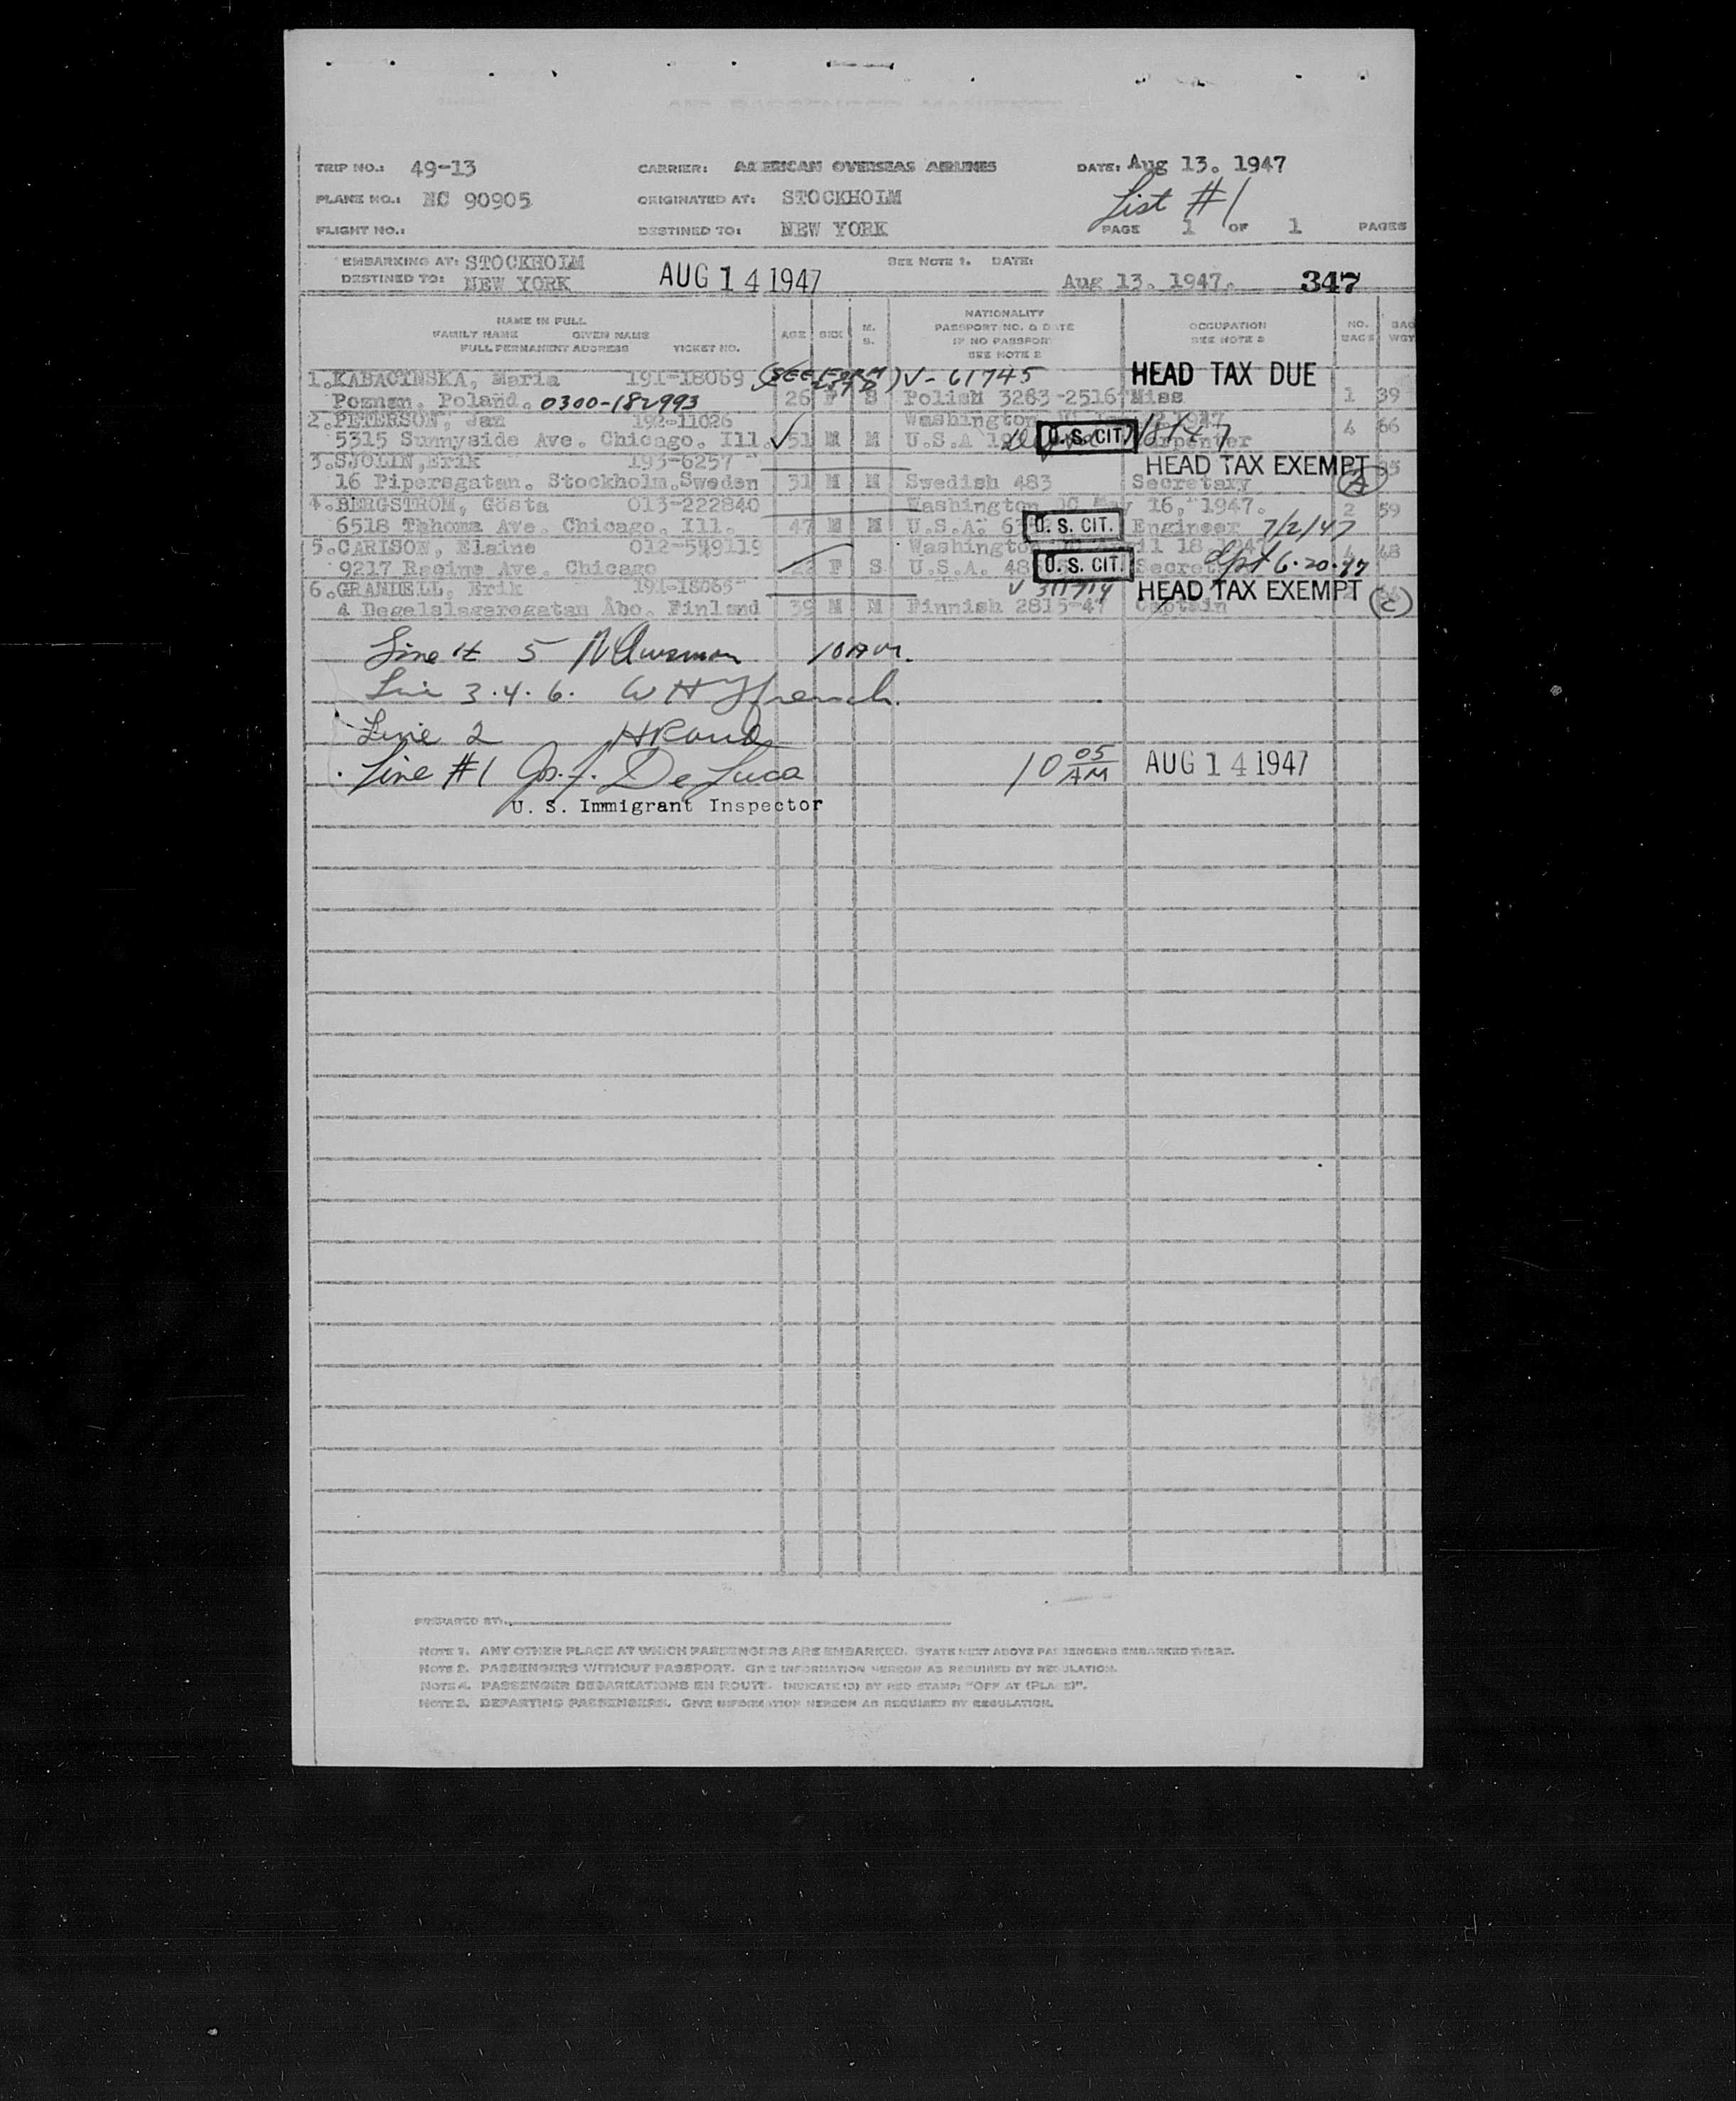 TRIP NO.: 49-13 CARRIER: AMERICAN OVERSEAS AIRLINES DATE: Aug 13. 1947
PLANE NO.: NC 90905 ORIGINATED AT: STOCKHOLM List #1
FLIGHT NO.: DESTINED TO: NEW YORK PAGE 1 OF 1 PAGES
EMBARKING AT: STOCKHOLM SEE NOTE 1. DATE:
DESTINED TO: NEW YORK AUG 14 1947 Aug 13. 1947. 347
NAME IN FULL
FAMILY NAME GIVEN NAME
FULL PERMANENT ADDRESS TICKET NO.
AGE SEX M. S.
NATIONALITY
PASSPORT NO. & DATE
IF NO PASSPORT
SEE NOTE 2
OCCUPATION
SEE NOTE 2
NO. BAGS BAG WGT
1. KABACINSKA, Maria 191-18069 (SEE FORM) V-61745 HEAD TAX DUE
Poznan. Poland. 0300-182993 26 F S Polish 3283-2516 Miss 1 39
2. PETERSON, Jan 192-11026 Washington 1947
5315 Sunnyside Ave. Chicago. Ill. 51 M M U.S.A U.S. CIT. Carpenter 4 66
3. SJOLIN, Erik 193-6257 HEAD TAX EXEMPT
16 Pipersgatan. Stockholm. Sweden 31 M M Swedish 483 Secretary A
4. BERGSTROM, Gösta 013-222840 Washington DC May 16, 1947.
6518 Tahoma Ave. Chicago. Ill. 47 M M U.S.A. U.S. CIT. Engineer 7/2/47 2 59
5. CARLSON, Elaine 012-549119 Washington April 18 1947
9217 Racine Ave. Chicago F S U.S.A. U.S. CIT. 6-20-47 4 48
6. GRANDELL, Erik 191-18065 V 311714 HEAD TAX EXEMPT
4 Degelslageregatan Åbo. Finland 39 M M Finnish 2815-47 Captain C
Line # 5 10 AM.
Line 3.4.6. W H French.
Line 2
Line #1 Jos. J. De Luca 10 05 AM AUG 14 1947
U. S. Immigrant Inspector
PREPARED BY:
NOTE 1. ANY OTHER PLACE AT WHICH PASSENGERS ARE EMBARKED. STATE NEXT ABOVE PASSENGERS EMBARKED THERE.
NOTE 2. PASSENGERS WITHOUT PASSPORT. GIVE INFORMATION HEREON AS REQUIRED BY REGULATION.
NOTE 4. PASSENGER DEBARKATIONS EN ROUTE. INDICATE (D) BY RED STAMP: "OFF AT (PLACE)".
NOTE 3. DEPARTING PASSENGERS. GIVE INFORMATION HEREON AS REQUIRED BY REGULATION.